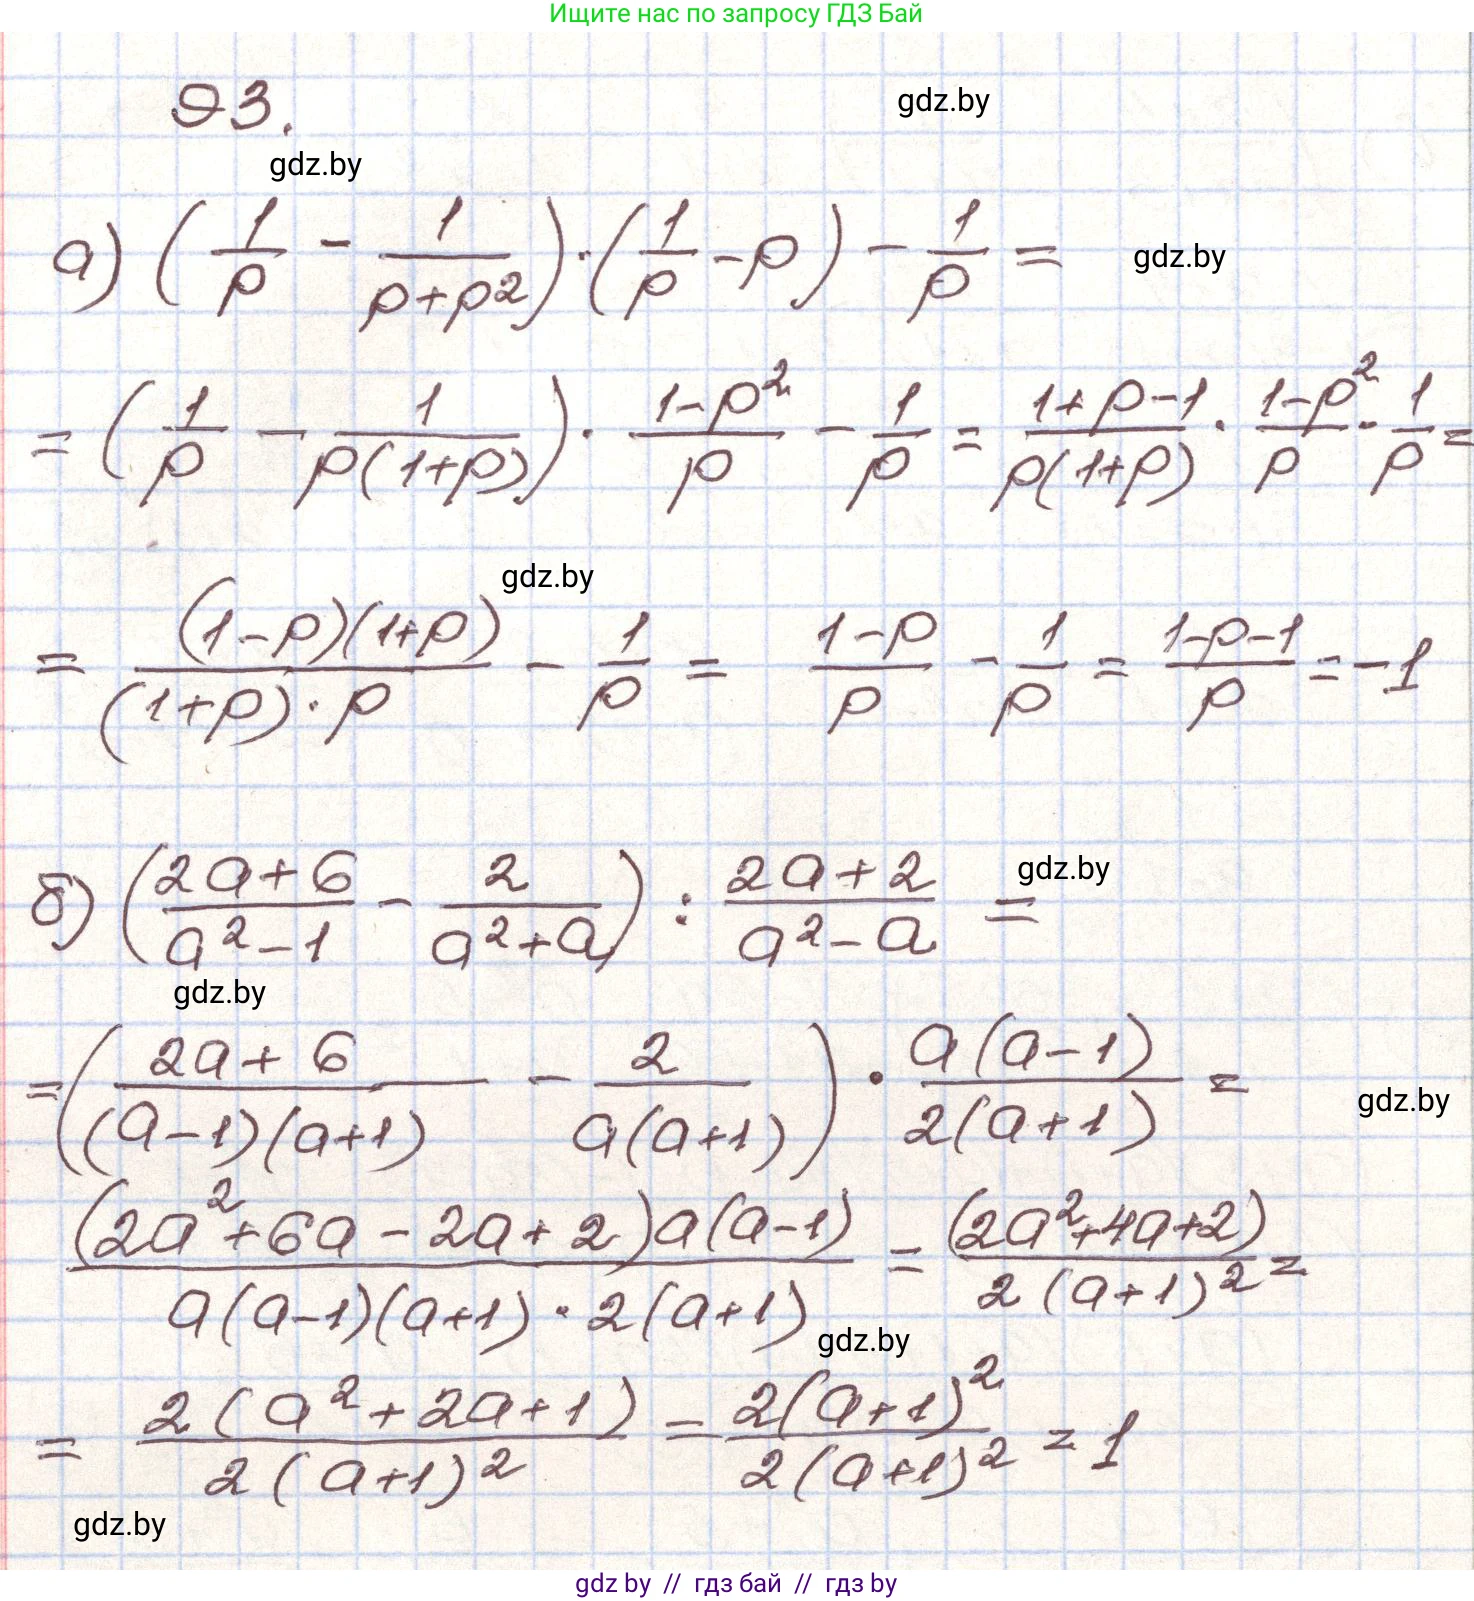 Ищите нас по запросу ГДЗ Бай
93.
gdz.by
gdz.by
а) (1/p - 1/(p+p²)) · (1/p - p) - 1/p =
gdz.by
= (1/p - 1/(p(1+p))) · (1-p²)/p - 1/p = (1+p-1)/(p(1+p)) · (1-p²)/p - 1/p =
gdz.by
= ((1-p)(1+p))/((1+p)·p) - 1/p = (1-p)/p - 1/p = (1-p-1)/p = -1
б) ((2a+6)/(a²-1) - 2/(a²+a)) : (2a+2)/(a²-a) =
gdz.by
gdz.by
=((2a+6)/((a-1)(a+1)) - 2/(a(a+1))) · (a(a-1))/(2(a+1)) =
gdz.by
((2a²+6a-2a+2)a(a-1))/(a(a-1)(a+1)·2(a+1)) = (2a²+4a+2)/(2(a+1)²) =
gdz.by
= (2(a²+2a+1))/(2(a+1)²) = (2(a+1)²)/(2(a+1)²) = 1
gdz.by
gdz by // гдз бай // гдз by